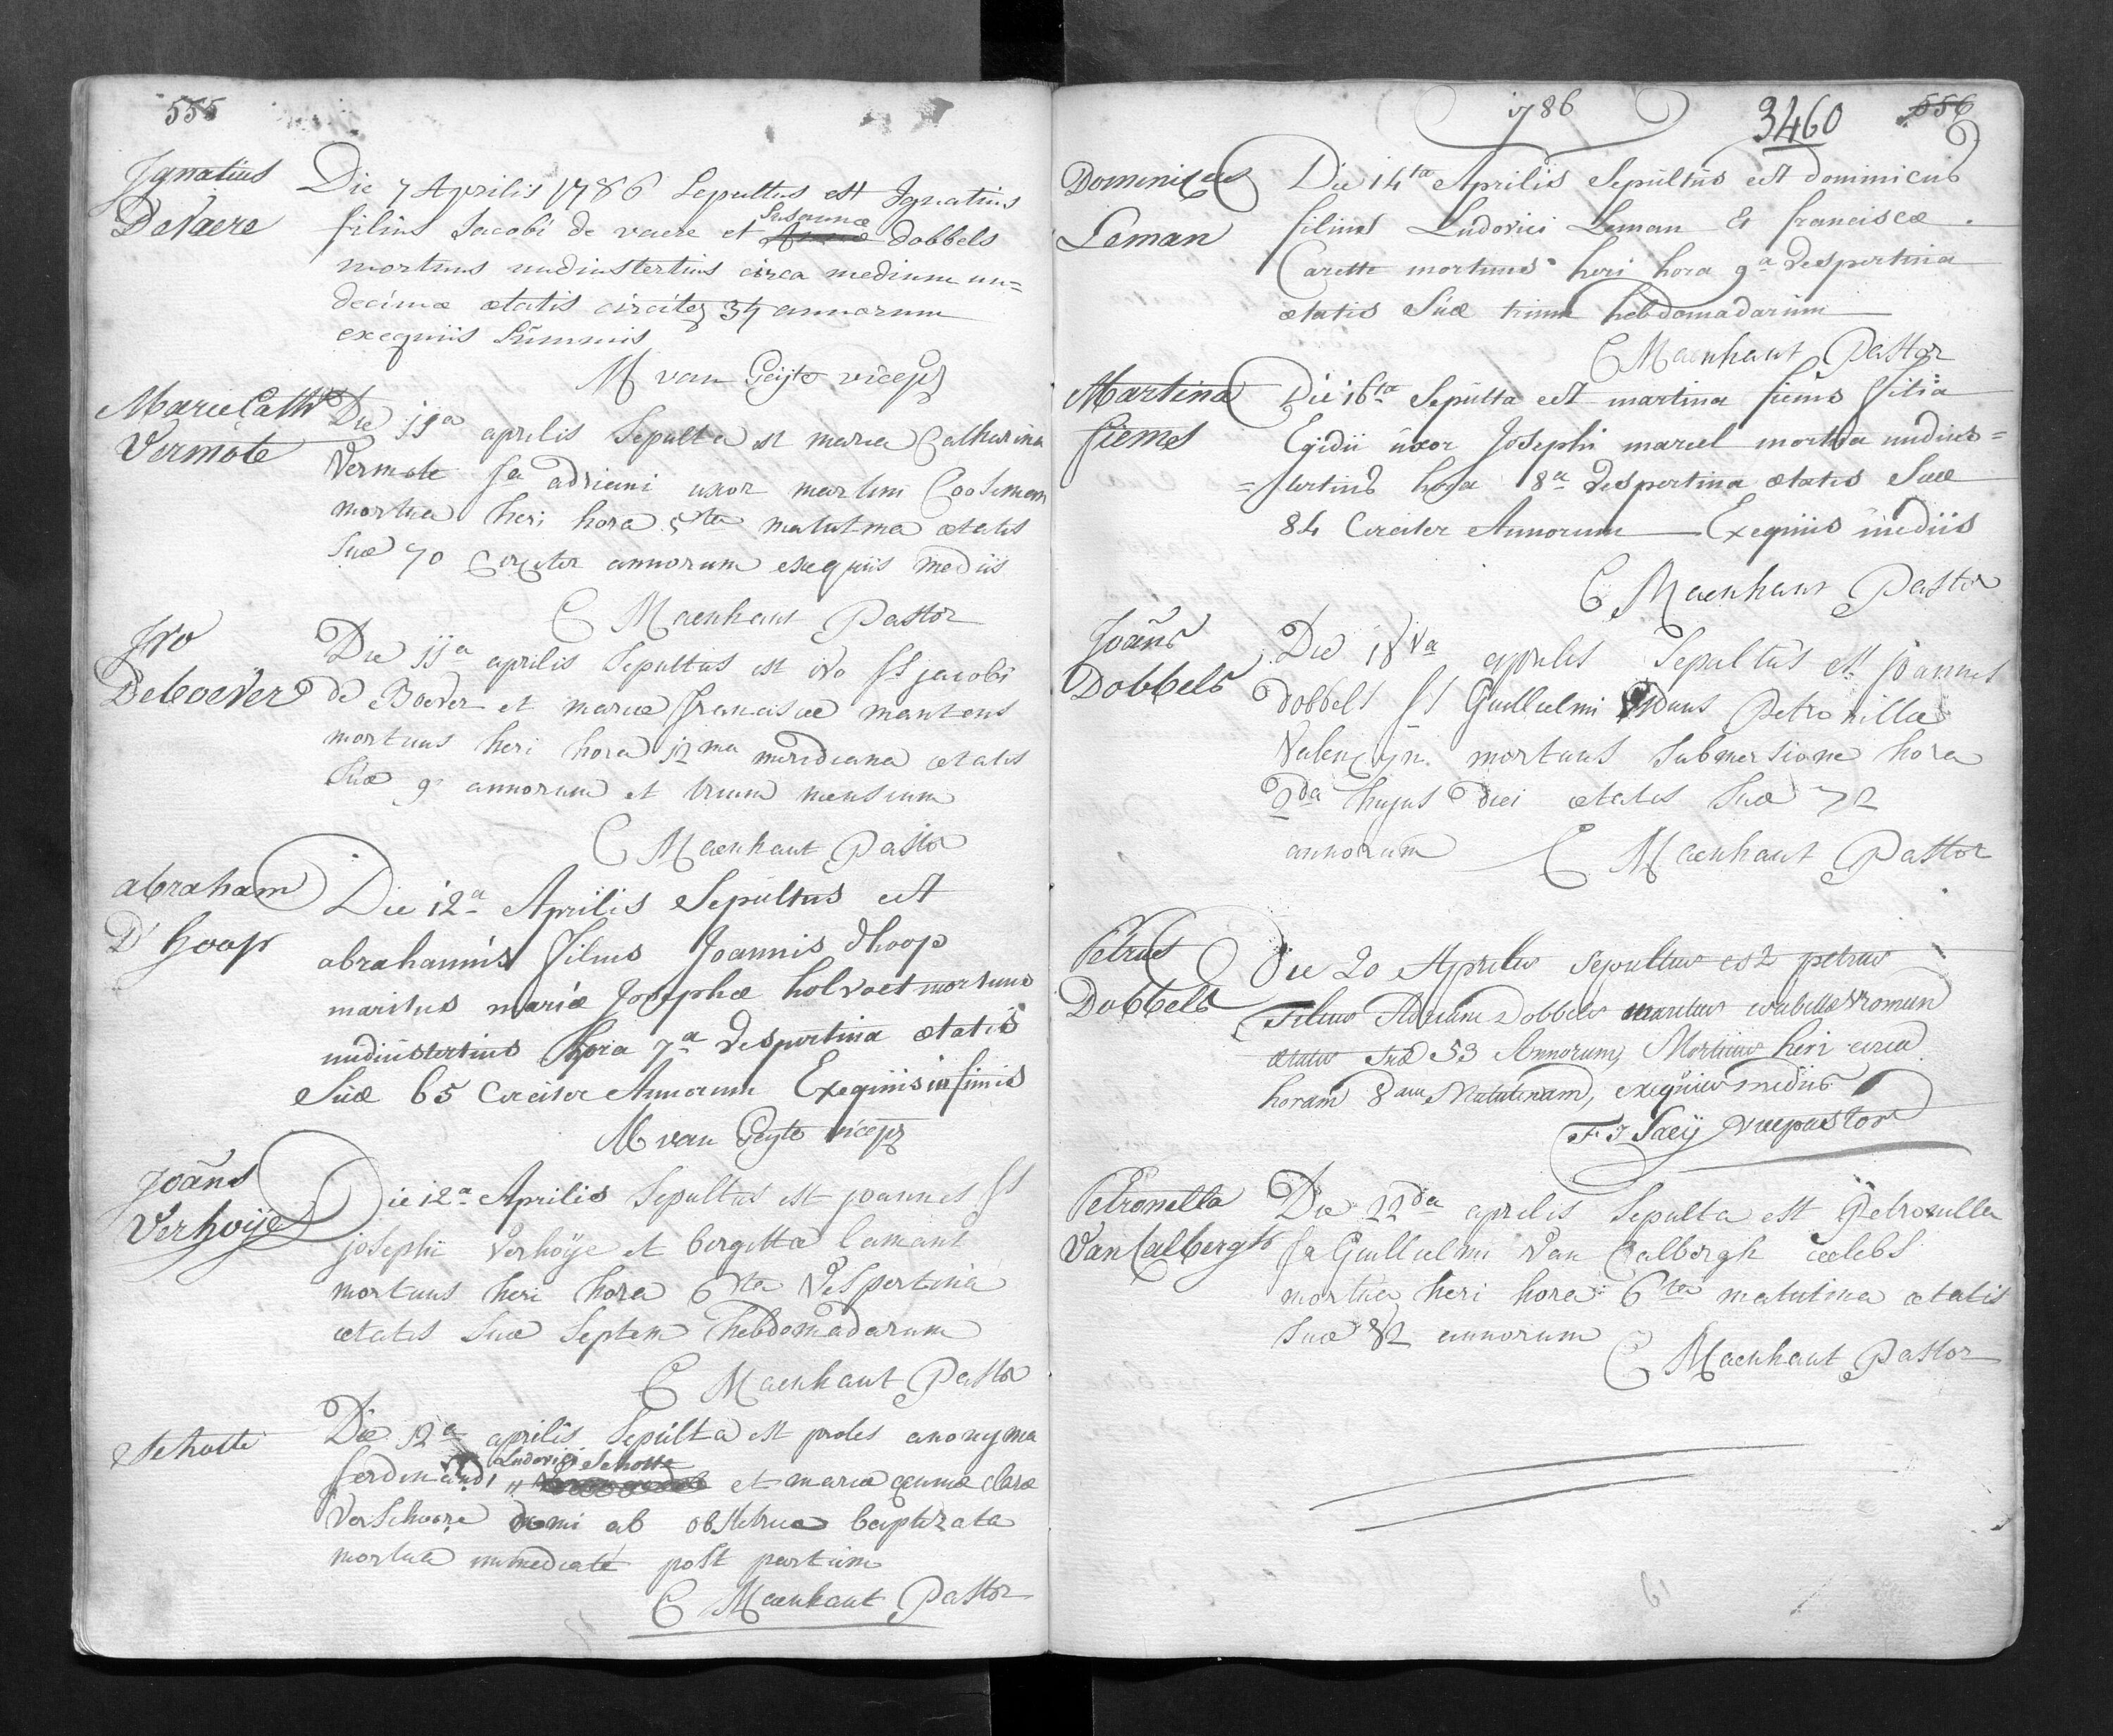 555
Ignatius
DeVaere
Die 7 Aprilis 1786 Sepultus est Ignatius
filius Jacobi de vaere et Susannæ dobbels
mortuus nudiustertius circa medium un=
decimæ ætatis circiter 34 annorum
exequiis summis
M van Geijte vicep
Maria Cath
Vermote
Die 11a aprilis Sepulta est maria Catharina
Vermote fa adriani uxor martini Cooseman
mortua heri hora 5ta matutina ætatis
suæ 70 Circiter annorum exequiis mediis
C Maenhaut Pastor
Ivo
Deboever
Die 11a aprilis Sepultus est ivo fs jacobi
de Boever et mariæ franciscæ mantens
mortuus heri hora 12ma meridiana ætatis
Suæ 9 annorum et trium mensium
C Maenhaut Pastor
abraham
D'hoop
Die 12a Aprilis Sepultus est
abrahamus filius Joannis dhoop
maritus mariæ Josephæ holvoet mortuus
nudiustertius hora 7a Vespertina ætatis
Suæ 65 Circiter Annorum Exequiis infimis
M van Geyte vicep
Joañs
Verhoije
Die 12a Aprilis Sepultus est joannes fs
josephi Verhoÿe et birgitta Lamant
mortuus heri hora 6ta Vespertina
ætatis Suæ Septem hebdomadarum
C Maenhaut Pastor
Schotte
Die 12a aprilis Sepulta est proles anonyma
Ludovici Schotte
ferdinandi et mariæ annæ claræ
Verschoore domi ab obstetrice baptizata
mortua immediaté post partum
C Maenhaut Pastor
1786
3460
556
Dominicus
Leman
Die 14ta Aprilis Sepultus est dominicus
filius Ludovici Leman Et franciscæ
Carette mortuus heri hora 9a Vespertina
ætatis Suæ trium hebdomadarum
C Maenhaut Pastor
Martina
fiems
Die 16ta Sepulta est martina fiems filia
Egidii uxor Josephi marcel mortua nudius=
=tertius hora 8a Vespertina ætatis Suæ
84 Circiter Annorum Exequiis mediis
C Maenhaut Pastor
Joañs
Dobbels
Die 18va aprilis Sepultus est joannes
dobbels fs Guillielmi Viduus Petronillæ
Valencijn mortuus Submersione hora
2da hujus diei ætatis Suæ 72
annorum C Maenhaut Pastor
Petrus
Dobbels
Die 20 Aprilis sepultus est petrus
Filius Adriani Dobbels maritus isabellæ vroman
ætatis suæ 53 Annorum, Mortuus heri circa
horam 8am Matutinam, exequiis mediis
F J Saeij vicepastor
Petronella
Van Calbergh
Die 22da aprilis Sepulta est Petronilla
fa Guillielmi Van Calbergh cælebs
mortua heri hora 6ta matutina ætatis
suæ 82 annorum
C Maenhaut Pastor